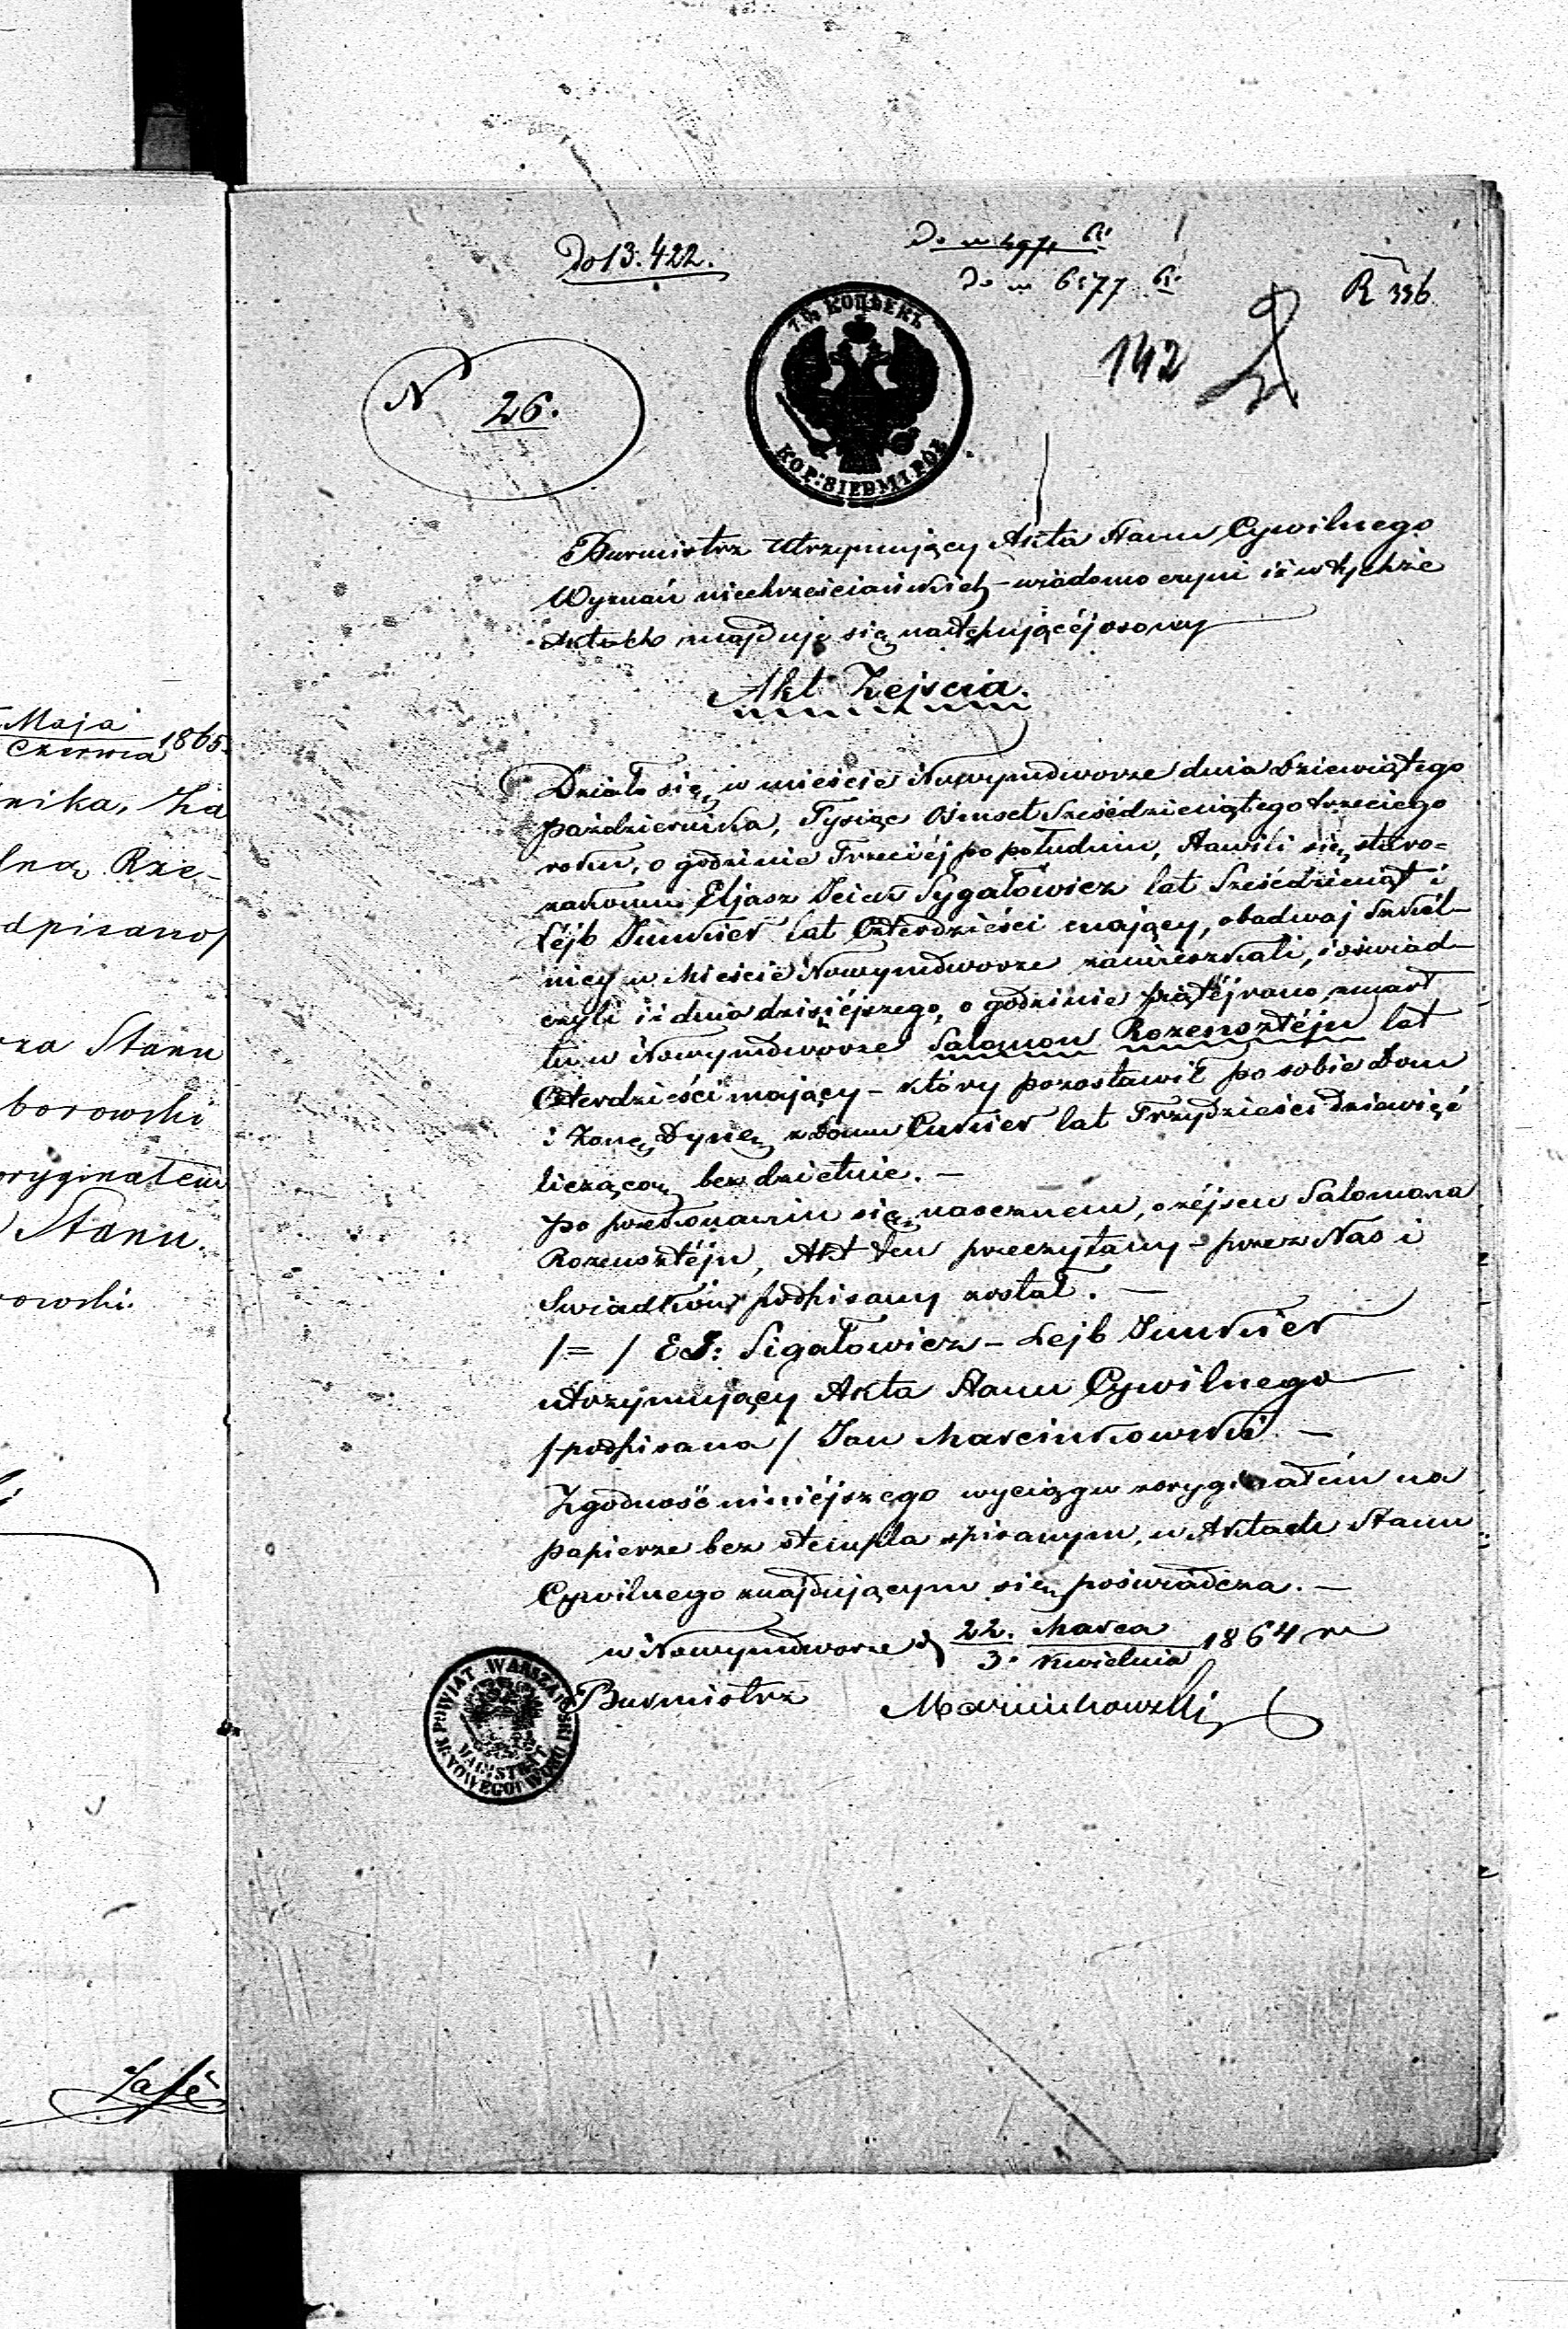 Do 13.422.
Do n 6577
R 336
142
7½ КОПѢЕКЪ
KOP: SIEDM I PÓŁ
N 26.
Burmistrz Utrzymujący Akta Stanu Cywilnego
Wyznań niechrześciańskich – wiadomo czyni iż w tychże
Aktach znajduje się następującéj osnowy
Akt Zejścia.
Działo się, w mieście Nowymdworze dnia dziewiątego
października, Tysiąc Ośmset Sześćdziesiątego trzeciego
roku, o godzinie Trzeciéj po południu, Stawili się, staro=
zakonni Eljasz Sygałowicz lat Sześćdziesiąt i
Léjb lat Czterdzieści mający, obadwaj Szkól-
nicy w Mieście Nowymdworze zamieszkali, i oświad-
czyli iż dnia dzisiéjszego, o godzinie piątéj rano, zmarł
tu w Nowymdworze Salomon Rozensztéjn lat
Czterdzieści mający – który pozostawił po sobie Dom
i Żonę, Dynę, z Domu Cukier lat Trzydzieści dziewięć
liczącą, bezdzietnie. –
po przekonaniu się, naocznem, o zéjściu Salomona
Rozensztéjn, Akt ten przeczytany – przez Nas i
Świadków podpisany został. –
/=/ EJ: Sigałowicz – Lejb
utrzymujący Akta Stanu Cywilnego
/podpisano/ Jan Marcinkowski. –
Zgodność niniéjszego wyciągu z oryginałem na
papierze bez stempla spisanym, w Aktach Stanu
Cywilnego znajdującym się, poświadcza. –
w Nowymdworze d 22. Marca / 3. Kwietnia 1864 r
Burmistrz Marcinkowski
POWIAT WARSZAWSKI
MAGISTRAT
M. NOWEGO DWORU
Maja
Czerwca 1865.
nika, Za
lną Rze-
dpisano/
rza Stanu
borowski
oryginałem
Stanu.
rowski.